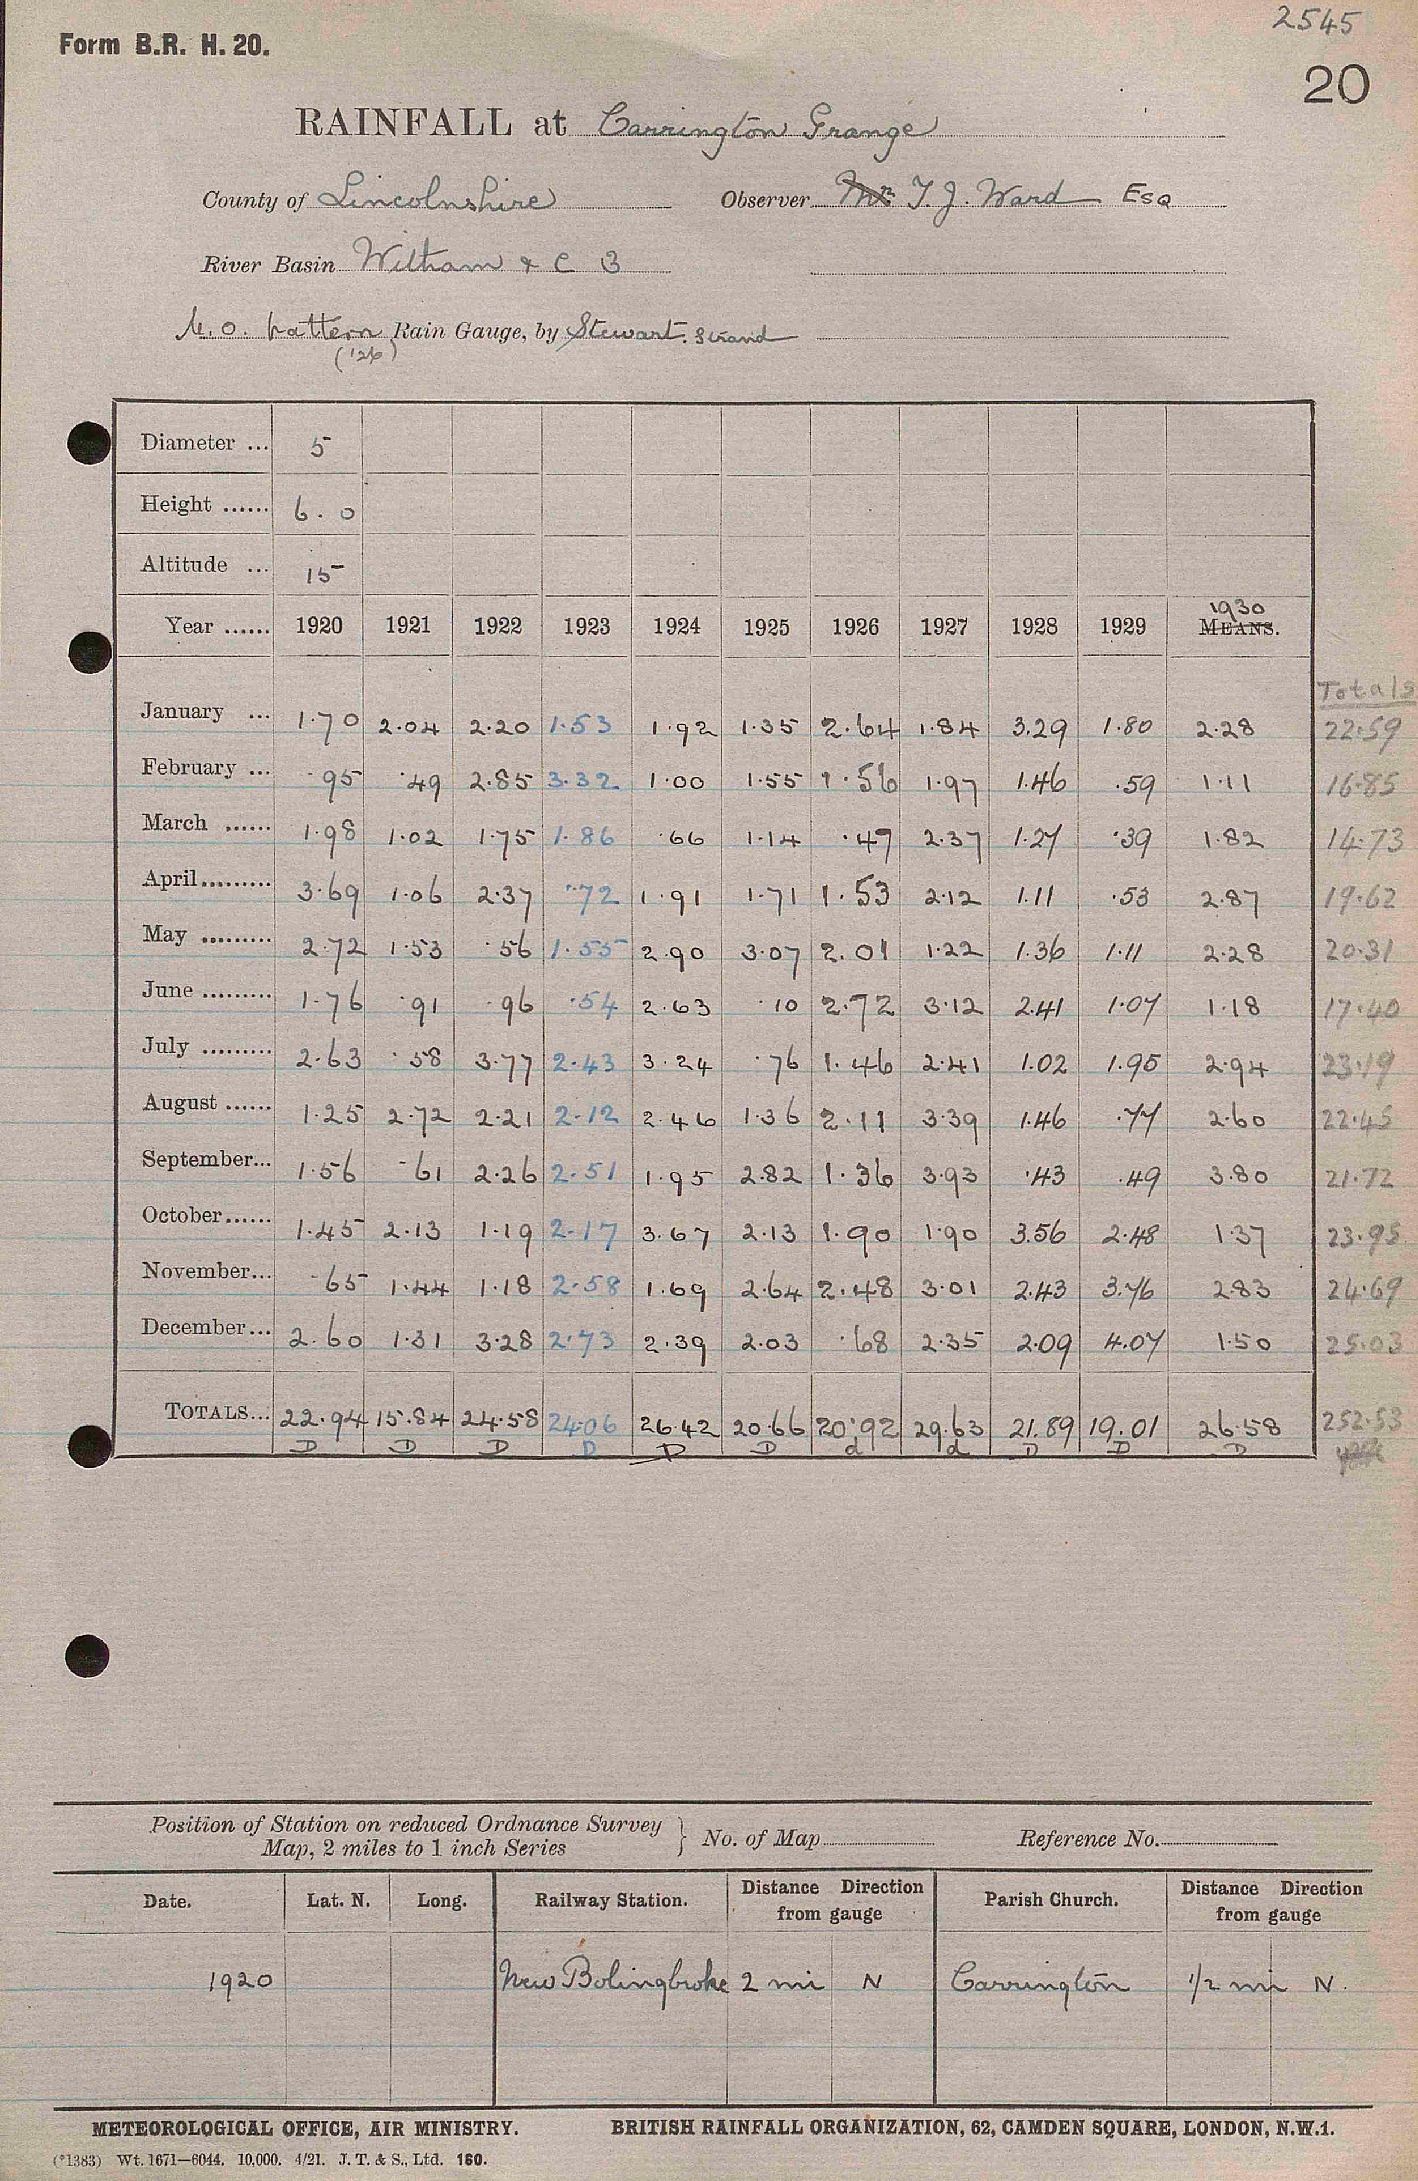 2545
Form B.R. H. 20.
20
RAINFALL at Carrington Grange
County of Lincolnshire Observer Mr. T. J. Ward Esq
River Basin Witham & C 3
M.O. pattern Rain Gauge, by Stewart. Strand
('26)
Diameter ... 5
Height ...... 6.0
Altitude ... 15
1930
Year ...... 1920 1921 1922 1923 1924 1925 1926 1927 1928 1929 MEANS.
Totals
January ... 1.70 2.04 2.20 1.53 1.92 1.35 2.64 1.84 3.29 1.80 2.28 22.59
February ... .95 .49 2.85 3.32 1.00 1.55 1.56 1.97 1.46 .59 1.11 16.85
March ...... 1.98 1.02 1.75 1.86 .66 1.14 .47 2.37 1.27 .39 1.82 14.73
April ......... 3.69 1.06 2.37 .72 1.91 1.71 1.53 2.12 1.11 .53 2.87 19.62
May ......... 2.72 1.53 .56 1.55 2.90 3.07 2.01 1.22 1.36 1.11 2.28 20.31
June ......... 1.76 .91 .96 .54 2.63 .10 2.72 3.12 2.41 1.07 1.18 17.40
July ......... 2.63 .58 3.77 2.43 3.24 .76 1.46 2.41 1.02 1.95 2.94 23.19
August ...... 1.25 2.72 2.21 2.12 2.46 1.36 2.11 3.39 1.46 .77 2.60 22.45
September... 1.56 .61 2.26 2.51 1.95 2.82 1.36 3.93 .43 .49 3.80 21.72
October...... 1.45 2.13 1.19 2.17 3.67 2.13 1.90 1.90 3.56 2.48 1.37 23.95
November... .65 1.44 1.18 2.58 1.69 2.64 2.48 3.01 2.43 3.76 2.83 24.69
December... 2.60 1.31 3.28 2.73 2.39 2.03 .68 2.35 2.09 4.07 1.50 25.03
TOTALS... 22.94 15.84 24.58 24.06 26.42 20.66 20.92 29.63 21.89 19.01 26.58 252.53
D D D D D D d d D D D
Position of Station on reduced Ordnance Survey
Map, 2 miles to 1 inch Series } No. of Map Reference No.
Date. Lat. N. Long. Railway Station. Distance Direction from gauge Parish Church. Distance Direction from gauge
1920 New Bolingbroke 2 mi N Carrington 1/2 mi N.
METEOROLOGICAL OFFICE, AIR MINISTRY. BRITISH RAINFALL ORGANIZATION, 62, CAMDEN SQUARE, LONDON, N.W.1.
(*1383) Wt. 1671—6044. 10,000. 4/21. J. T. & S., Ltd. 160.